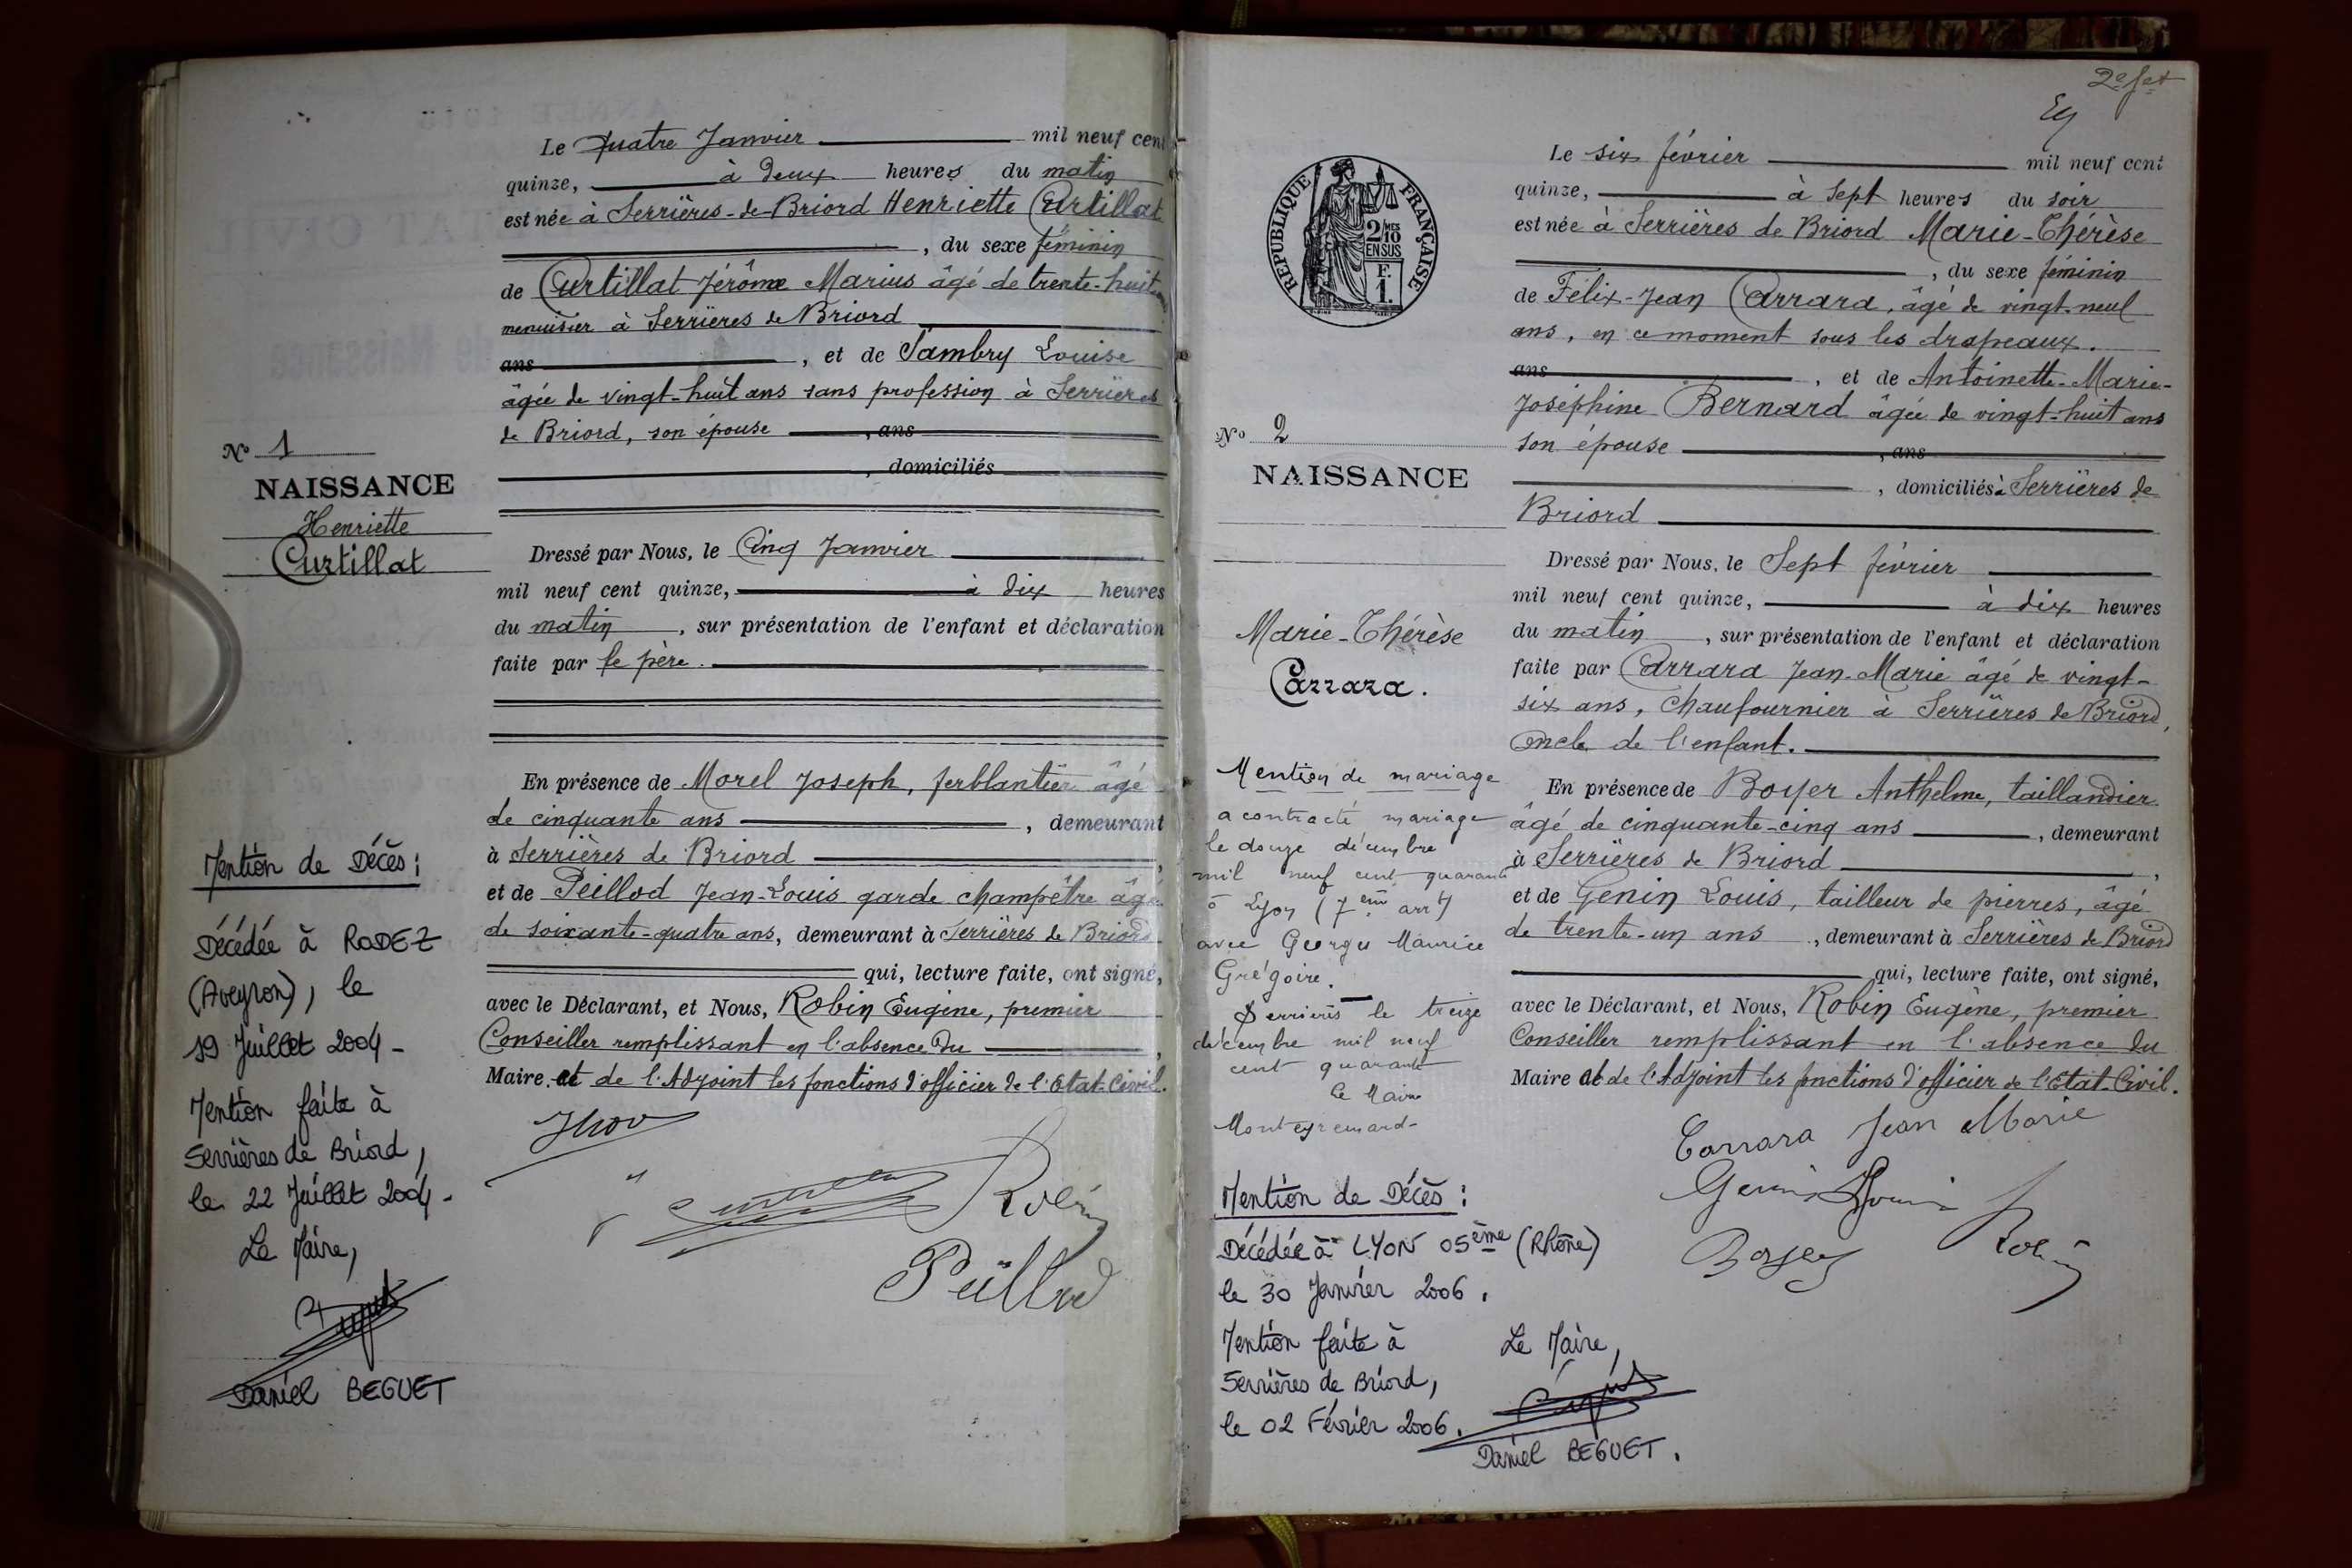 Le quatre Janvier mil neuf cent
quinze, à deux heures du matin
est née à Serrières-de-Briord Henriette Curtillat
, du sexe féminin
de Curtillat Jérôme Marius âgé de trente-huit
menuisier à Serrières de Briord
ans , et de Sambry Louise
âgée de vingt-huit ans sans profession à Serrières
de Briord, son épouse , ans
, domiciliés
No 1
NAISSANCE
Henriette
Curtillat
Dressé par Nous, le Cinq Janvier
mil neuf cent quinze, à dix heures
du matin , sur présentation de l'enfant et déclaration
faite par le père.
En présence de Morel Joseph, ferblantier âgé
de cinquante ans , demeurant
à Serrières de Briord ,
et de Peillod Jean-Louis garde champêtre âgé
de soixante-quatre ans, demeurant à Serrières de Briord
qui, lecture faite, ont signé,
avec le Déclarant, et Nous, Robin Eugène, premier
Conseiller remplissant en l'absence du ,
Maire et de l'Adjoint les fonctions d'officier de l'Etat-Civil.
Robin
Peillod
Mention de Décès :
Décédée à RODEZ
(Aveyron), le
19 Juillet 2004-
Mention faite à
Serrières de Briord,
le 22 Juillet 2004-
Le Maire,
Daniel BEGUET
2e fet
RÉPUBLIQUE FRANÇAISE
2 MES
10
EN SUS
F.
1.
Le six février mil neuf cent
quinze, à sept heures du soir
est née à Serrières de Briord Marie-Thérèse
, du sexe féminin
de Félix-Jean Carrara, âgé de vingt-neuf
ans, en ce moment sous les drapeaux.
ans , et de Antoinette-Marie-
Joséphine Bernard âgée de vingt-huit ans
son épouse , ans
, domiciliés à Serrières de
Briord
No 2
NAISSANCE
Marie-Thérèse
Carrara.
Dressé par Nous, le Sept février
mil neuf cent quinze, à dix heures
du matin , sur présentation de l'enfant et déclaration
faite par Carrara Jean-Marie âgé de vingt-
six ans, Chaufournier à Serrières de Briord,
oncle de l'enfant.
En présence de Boyer Anthelme, taillandier
âgé de cinquante-cinq ans , demeurant
à Serrières de Briord ,
et de Genin Louis, tailleur de pierres, âgé
de trente-un ans , demeurant à Serrières de Briord
qui, lecture faite, ont signé,
avec le Déclarant, et Nous, Robin Eugène, premier
Conseiller remplissant en l'absence du
Maire et de l'Adjoint les fonctions d'officier de l'Etat-Civil.
Carrara Jean Marie
Genin Louis
Boyer
Robin
Mention de mariage
a contracté mariage
le douze décembre
mil neuf cent quarante
à Lyon (7eme arrt)
avec Georges Maurice
Grégoire.
Serrières le treize
décembre mil neuf
cent quarante
Le Maire
Monteyremard-
Mention de Décès :
Décédée à LYON 05ème (Rhône)
le 30 Janvier 2006.
Mention faite à
Serrières de Briord,
le 02 Février 2006.
Le Maire,
Daniel BEGUET.